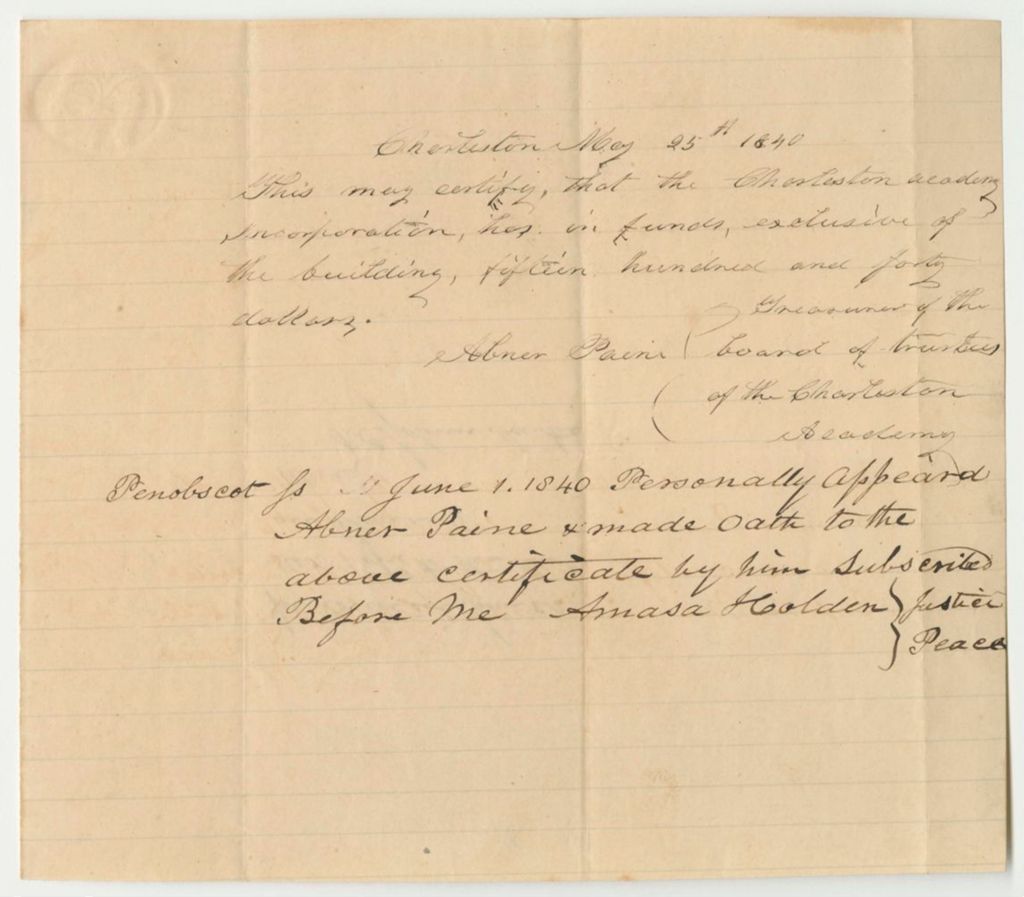 Charleston May 25th 1840
This may certify, that the Charleston academy
Incorporation, has in funds, exclusive of
the building, fifteen hundred and forty
dollars.
Treasurer of the
Abner Paine board of trustees
of the Charleston
Academy
Penobscot Ss June 1. 1840 Personally Appeard
Abner Paine & made Oath to the
above certificate by him Subscribed
Before Me Amasa Holden } Justice
Peace